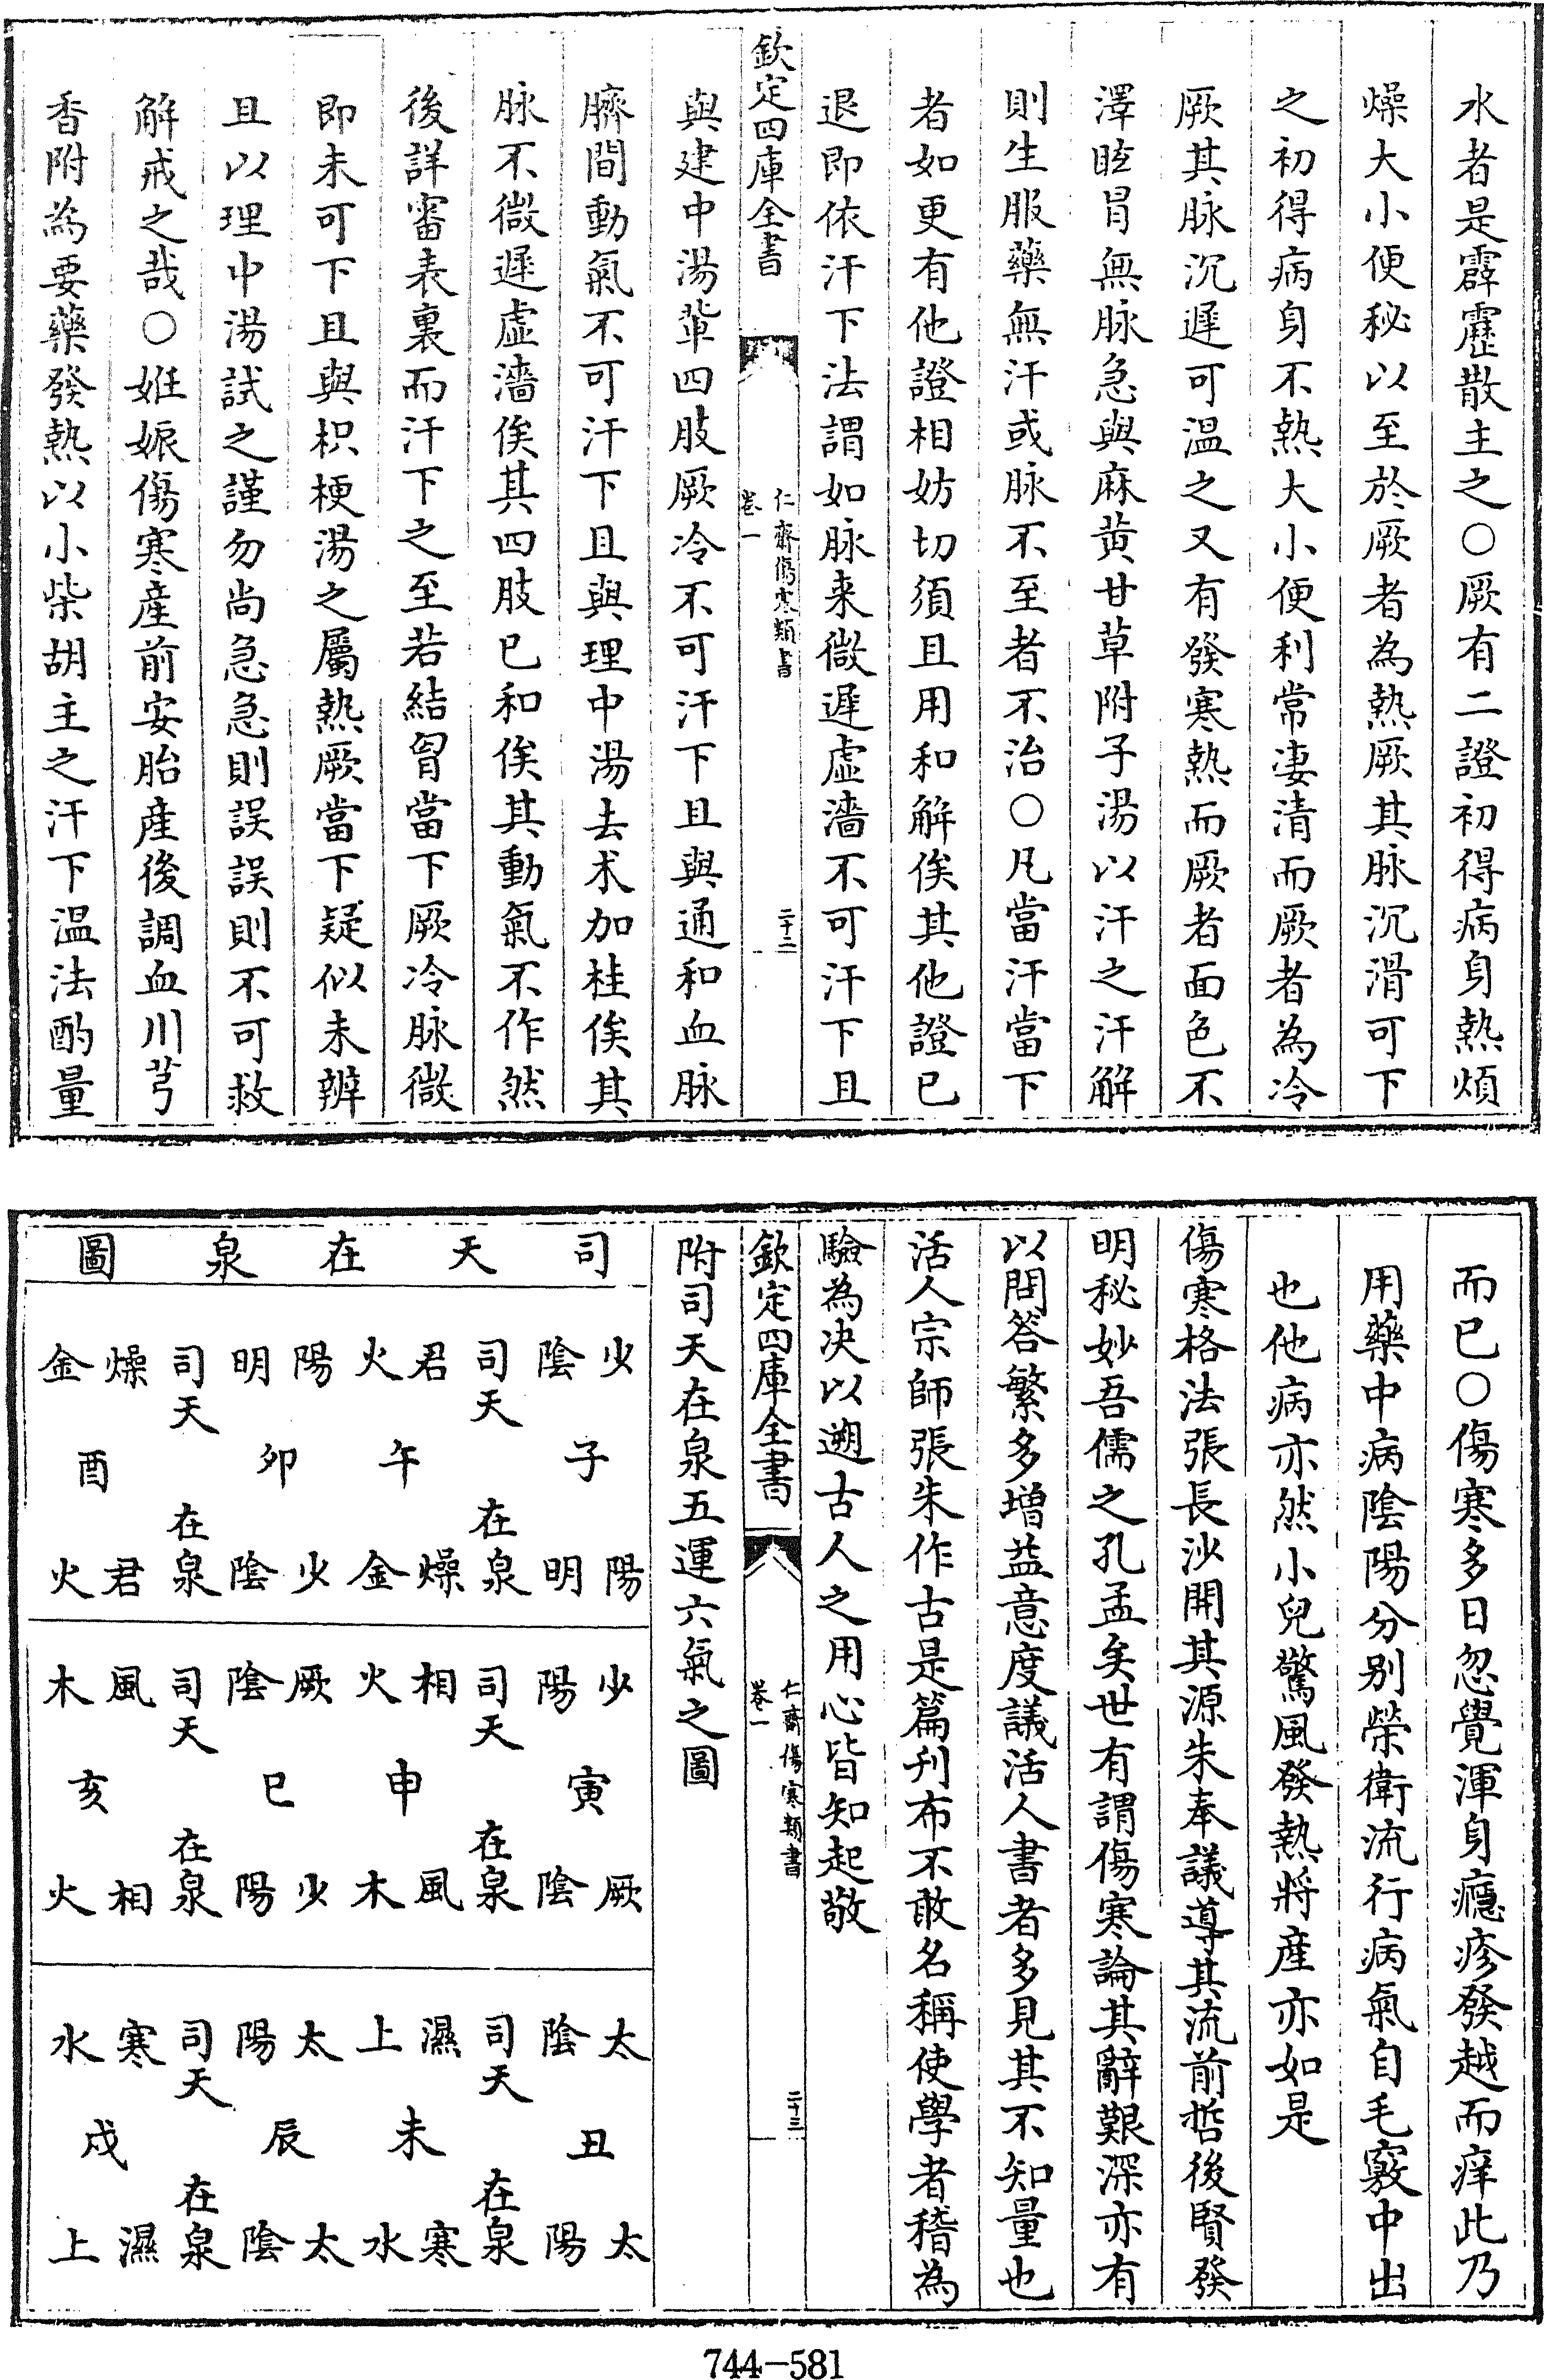 水者是霹靂散主之○厥有二證初得病身熱煩
燥大小便秘以至於厥者為熱厥其脉沉滑可下
之初得病身不熱大小便利常凄清而厥者為冷
厥其脉沉遲可温之又有發寒熱而厥者面色不
澤眩冒無脉急與麻黄甘草附子湯以汗之汗解
則生服藥無汗或脉不至者不治○凡當汗當下
者如更有他證相妨切須且用和解俟其他證已
退即依汗下法謂如脉来微遲虚濇不可汗下且
欽定四庫全書
仁齋傷寒類書
卷一
二十二
與建中湯輩四肢厥冷不可汗下且與通和血脉
臍間動氣不可汗下且與理中湯去术加桂俟其
脉不微遲虚濇俟其四肢已和俟其動氣不作然
後詳審表裏而汗下之至若結胷當下厥冷脉微
即未可下且與枳梗湯之屬熱厥當下疑似未辨
且以理中湯試之謹勿尚急急則誤誤則不可救
觧戒之哉○姙娠傷寒産前安胎産後調血川芎
香附為要藥發熱以小柴胡主之汗下温法酌量
而已○傷寒多日忽覺渾身癮疹發越而痒此乃
用藥中病陰陽分别榮衛流行病氣自毛竅中出
也他病亦然小兒驚風發熱將産亦如是
傷寒格法張長沙開其源朱奉議導其流前哲後賢發
明秘妙吾儒之孔孟矣世有謂傷寒論其辭艱深亦有
以問答繁多增益意度議活人書者多見其不知量也
活人宗師張朱作古是篇刋布不敢名稱使學者稽為
驗為决以遡古人之用心皆知起敬
欽定四庫全書
仁齋傷寒類書
卷一
二十三
附司天在泉五運六氣之圖
司天在泉圖
少陰司天君火陽明司天燥金
子午卯酉
陽明在泉燥金少陰在泉君火
少陽司天相火厥陰司天風木
寅申巳亥
厥陰在泉風木少陽在泉相火
太陰司天濕上太陽司天寒水
丑未辰戌
太陽在泉寒水太陰在泉濕上
744-581